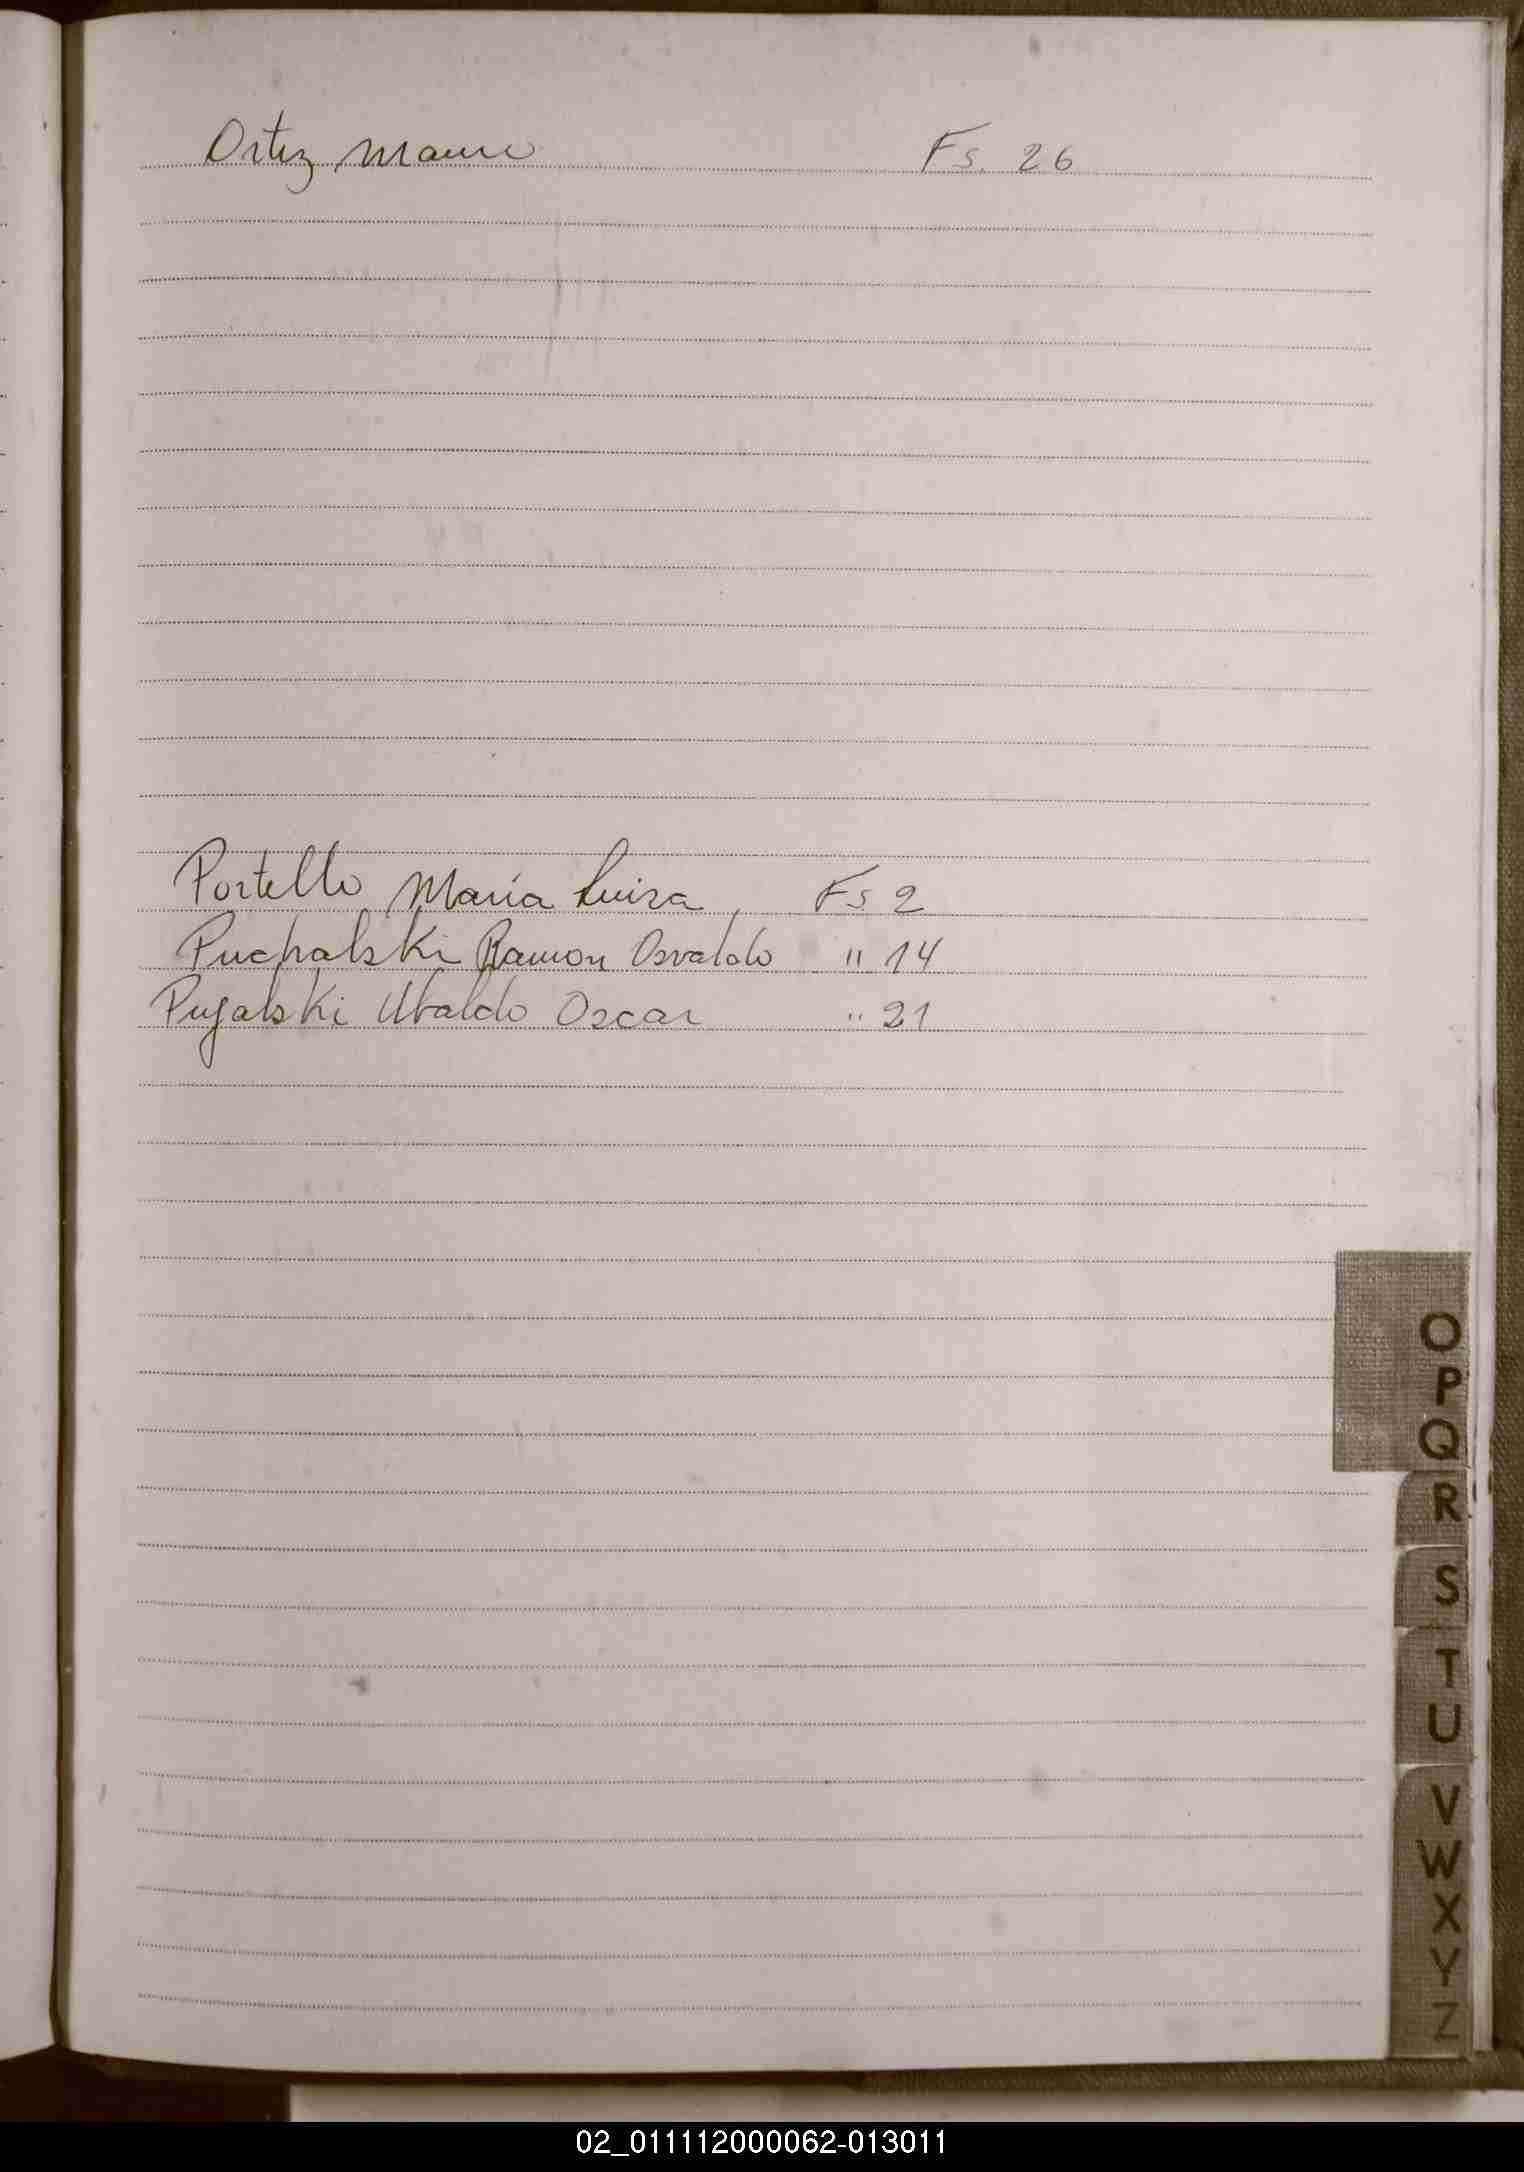 Ortiz Fs. 26
Portello María Luisa, Fs 2
Puchalski Ramon Osvaldo " 14
Pujalski Ubaldo Oscar " 21
O
P
Q
R
S
T
U
V
W
X
Y
Z
02_011112000062-013011